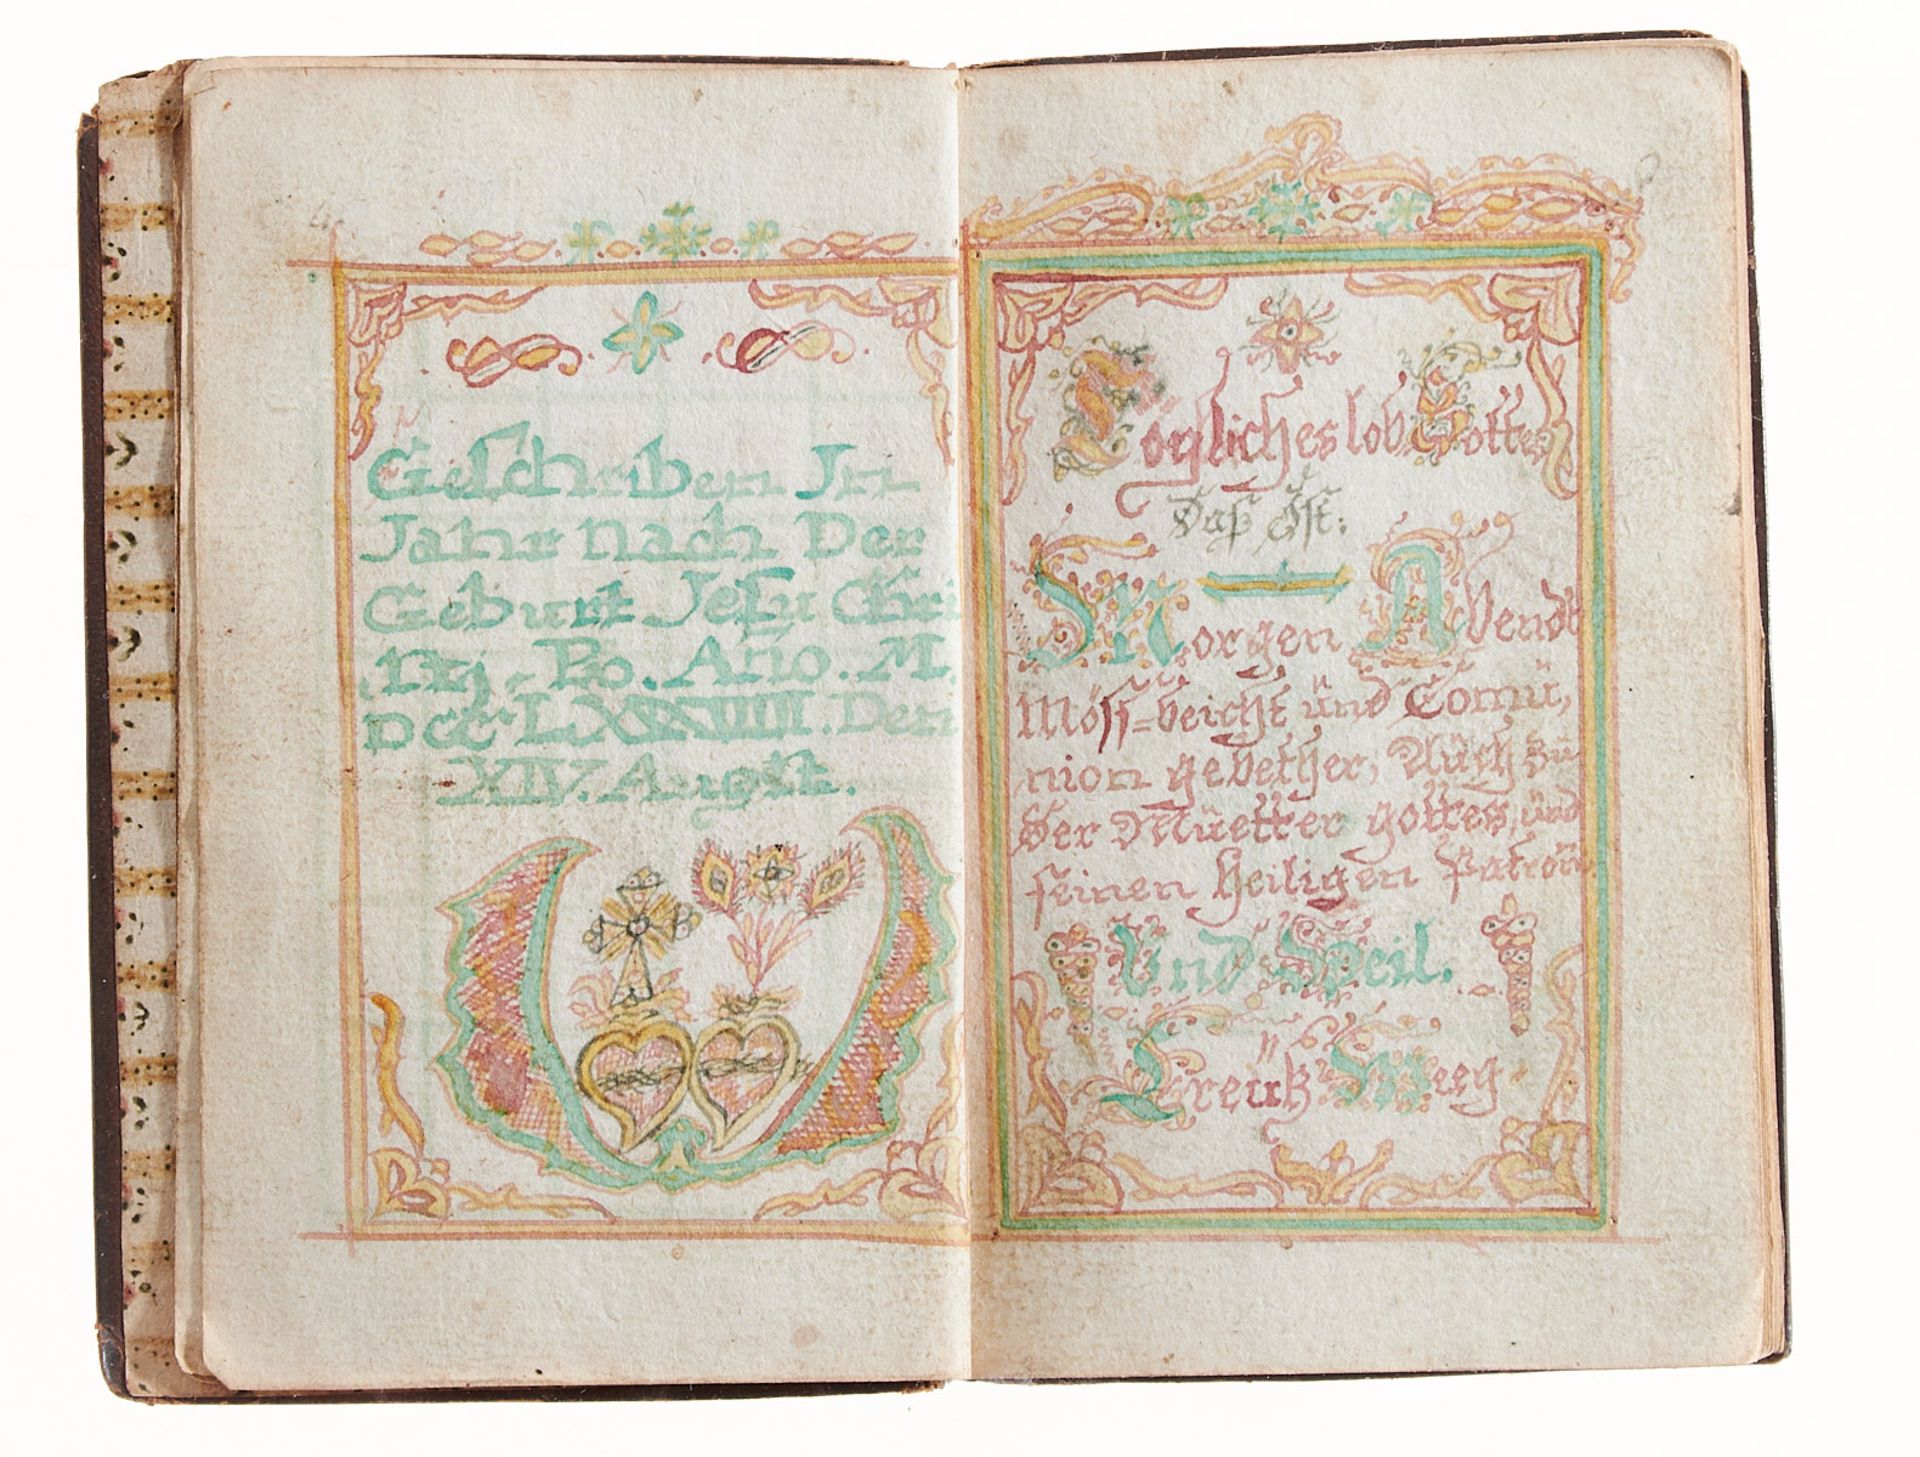 Geschriben Jn
Jahr nach Der
Geburt Jesu Chri
stj. Po. Ano. M.
DCCC LXXXVIIII. Den
XIV. Augst.
Lob Gottes
Daß Jst:
Morgen Abendt
Möss=beicht ünd Comü,
nion gebether, Aüch zu
Der Müetter gottes, ünd
seinen heiligen Patron
Und Heil.
Creütz Weeg